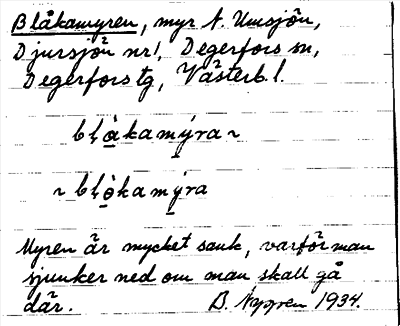 Blåkamyren, myr N. Umsjön,
Djursjön nr 1, Degerfors sn,
Degerfors tg, Västerb. l.
bḷɑ̀kamýra ~
~ bḷò̱kamýra
Myren är mycket sank, varför man
sjunker ned om man skall gå
där. B. Nygren 1934.